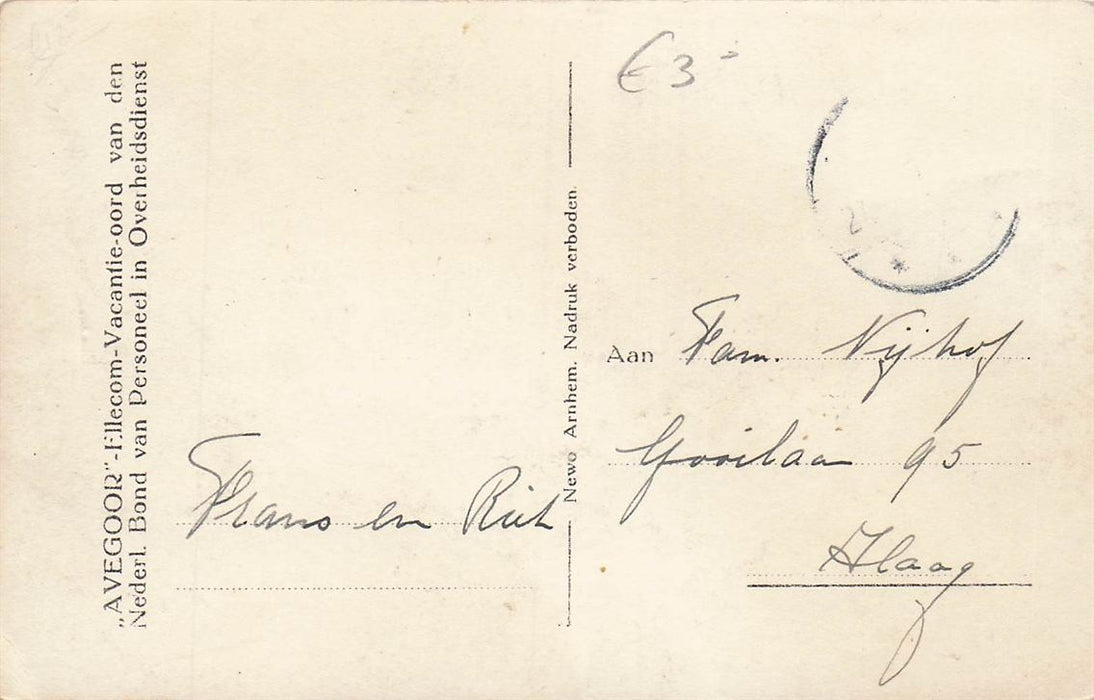 „AVEGOOR"-Ellecom-Vacantie-oord van den
Nederl. Bond van Personeel in Overheidsdienst
Frans en Riet
Newo Arnhem. Nadruk verboden.
€ 3-
Aan Fam. Nijhof
Gooilaan 95
Haag